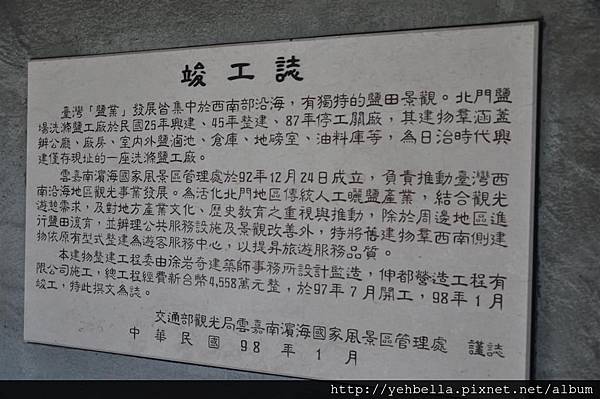 竣工誌
臺灣「鹽業」發展皆集中於西南部沿海，有獨特的鹽田景觀。北門鹽
場洗滌鹽工廠於民國25年興建、45年整建、87年停工關廠，其建物羣涵蓋
辦公廳、廠房、室內外鹽滷池、倉庫、地磅室、油料庫等，為日治時代興
建僅存現址的一座洗滌鹽工廠。
雲嘉南濱海國家風景區管理處於92年12月24日成立，負責推動臺灣西
南沿海地區觀光事業發展。為活化北門地區傳統人工曬鹽產業，結合觀光
遊憩需求，及對地方產業文化、歷史教育之重視與推動，除於周邊地區進
行鹽田復育，並辦理公共服務設施及景觀改善外，特將舊建物羣西南側建
物依原有型式整建為遊客服務中心，以提昇旅遊服務品質。
本建物整建工程委由徐岩奇建築師事務所設計監造，伸都營造工程有
限公司施工，總工程經費新台幣4,558萬元整，於97年7月開工，98年1月
竣工，特此撰文為誌。
交通部觀光局雲嘉南濱海國家風景區管理處 謹誌
中華民國98年1月
http://yehbella.pixnet.net/album